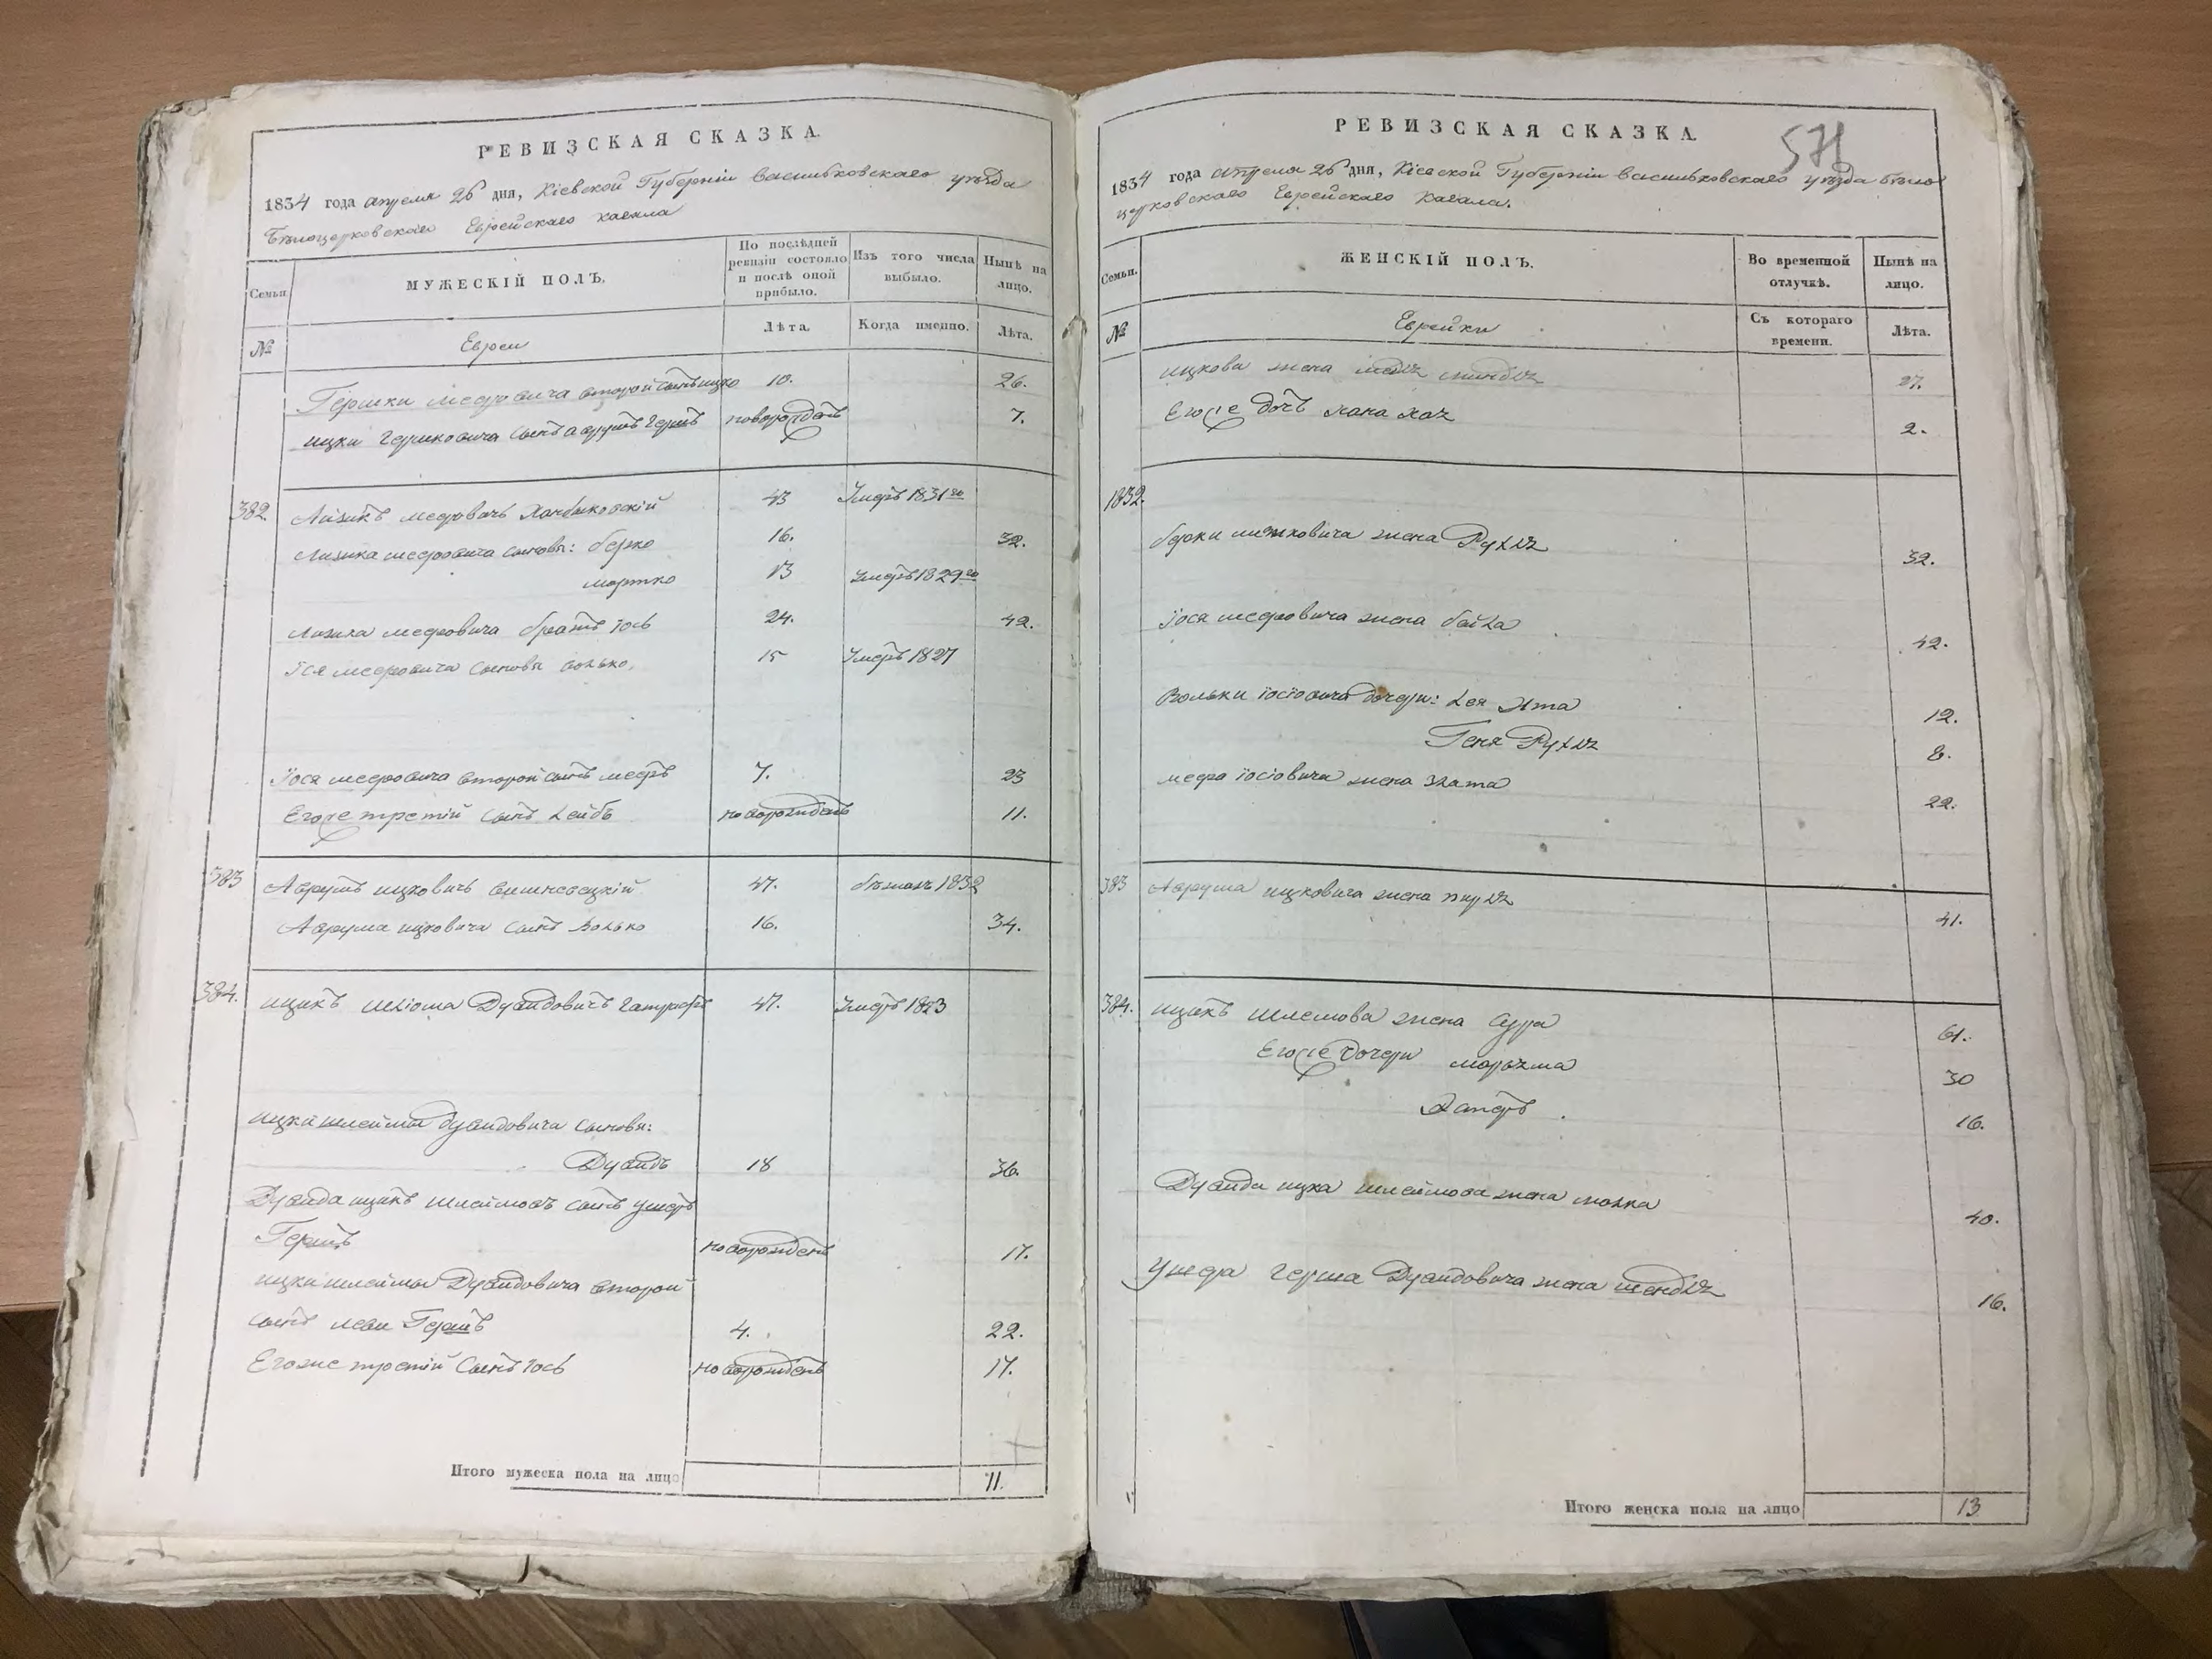 РЕВИЗСКАЯ СКАЗКА.
1834 года апреля 26 дня, Кіевской Губерніи васильковскаго уѣзда
Бѣлоцерковскаго Еврейскаго кагала
Семьи.
МУЖЕСКІЙ ПОЛЪ.
По послѣдней ревизіи состояло и послѣ оной прибыло.
Изъ того числа выбыло.
Нынѣ на лицо.
№
Евреи
Лѣта.
Когда именно.
Лѣта.
Гершки мееровича второй сынъ ицко 10. 26.
ицки Гершковича сынъ аврумъ Гершъ новорожденъ 7.
382. Айзикъ мееровичъ 43 Умеръ 1831го
Айзика мееровича сыновья: берко 16. 32.
мортко 13 Умеръ 1829го
Айзика мееровича братъ іось 24. 42.
Іося мееровича сыновья волько. 15 Умеръ 1827
Іося мееровича второй сынъ мееръ 7. 23
Егоже третій сынъ Лейбъ новорожденъ 11.
383 Аврумъ ицковичъ вишневецкій 47. 1832
Аврума ицковича сынъ Волько 16. 34.
384. ицикъ шліома Дувидовичъ 47. Умеръ 1823
ицки шлеймы Дувидовича сыновья:
Дувидъ 18 36.
Дувида ицикъ шлеймовъ сынъ ушеръ
Гершъ новорожденъ 17.
ицки шлеймы Дувидовича второй
сынъ леви Гершъ 4. 22.
Егоже третій сынъ іось новорожденъ 17.
Итого мужеска пола на лицо 11.
РЕВИЗСКАЯ СКАЗКА.
571
1834 года апреля 26 дня, Кіевской Губерніи васильковскаго уѣзда бѣло
церковскаго Еврейскаго кагала.
Семьи.
ЖЕНСКІЙ ПОЛЪ.
Во временной отлучкѣ.
Нынѣ на лицо.
№
Еврейки
Съ котораго времени.
Лѣта.
ицкова жена 27.
Егоже дочъ хана хая 2.
1832.
берки жена Рухля 32.
Іося мееровича жена бейла 42.
Вольки іосіовича дочери: Лея Ита 12.
Геня Рухля 8.
меера іосіовича жена злата 22.
383 Аврума ицковича жена 41.
384. ицикъ шлемова жена сура 61.
Егоже дочери 30
16.
Дувида ицка шлеймова жена молка 40.
Ушера герша Дувидовича жена шендля 16.
Итого женска пола на лицо 13